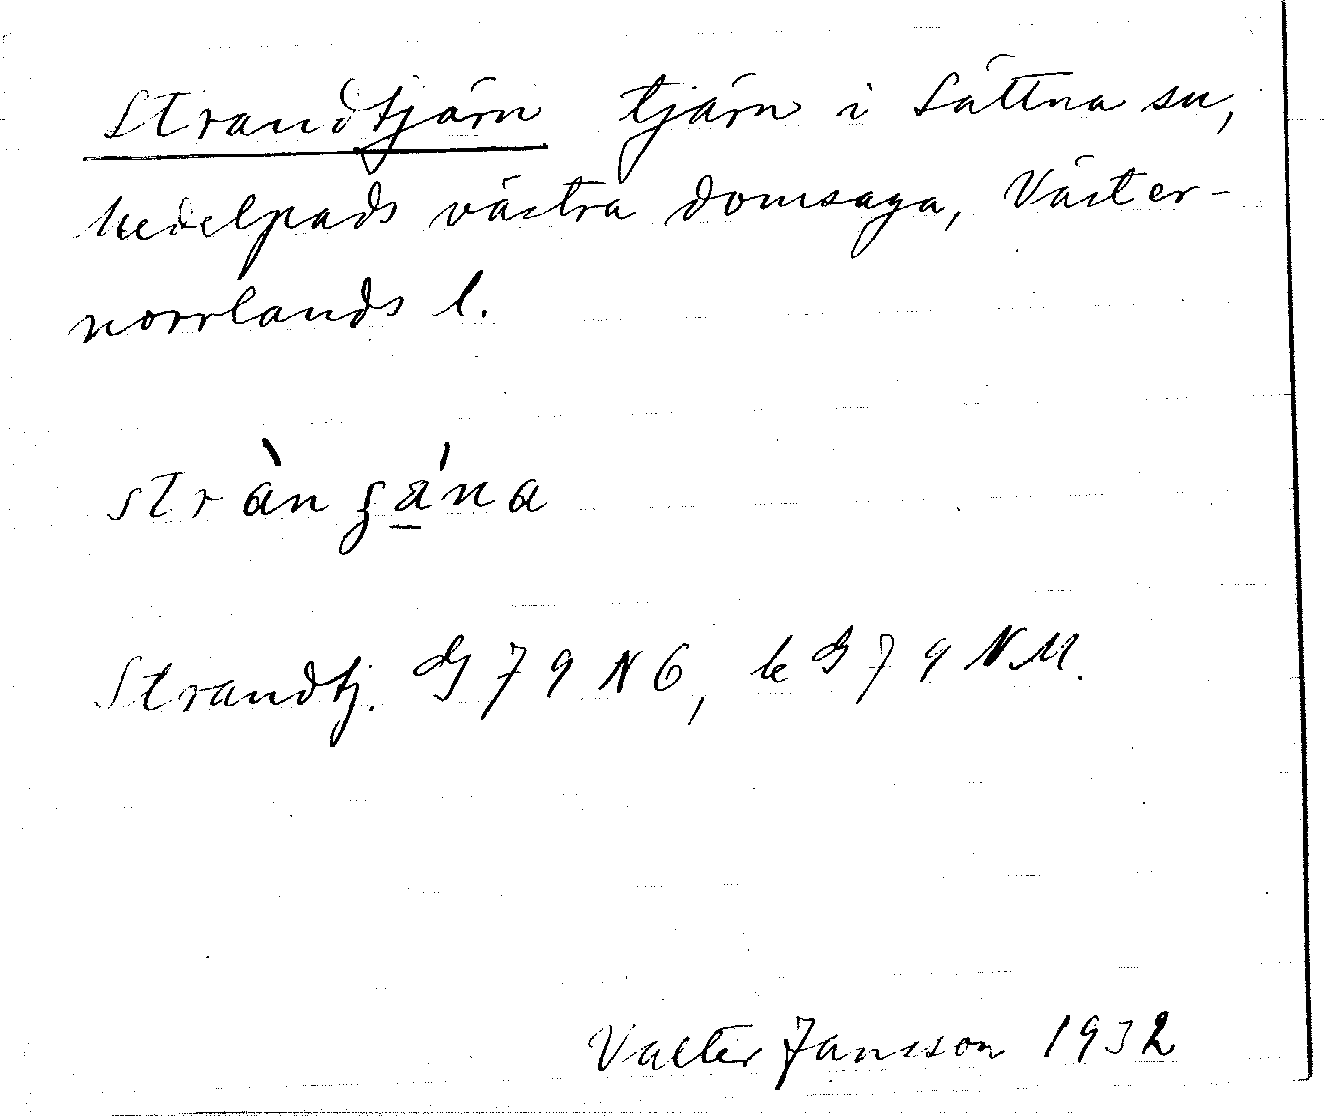 Strandtjärn tjärn i Sättna sn,
Medelpads västra domsaga, Väster-
norrlands l.
stràn ʂána
Strandtj. G 79 NG, be G 79 NM.
Valter Jansson 1932